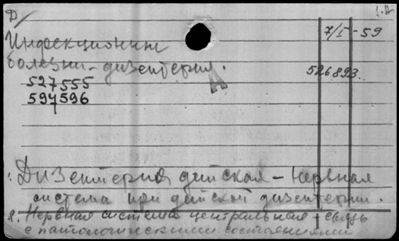 Д
1.A
7/I - 59
Инфекционные
болезни - дизентерия.
А
526893
527555
597596
1. Дизентерия детская - нервная
система при детской дизентерии.
2. Нервная система центральная - связь
с патологическими состояниями